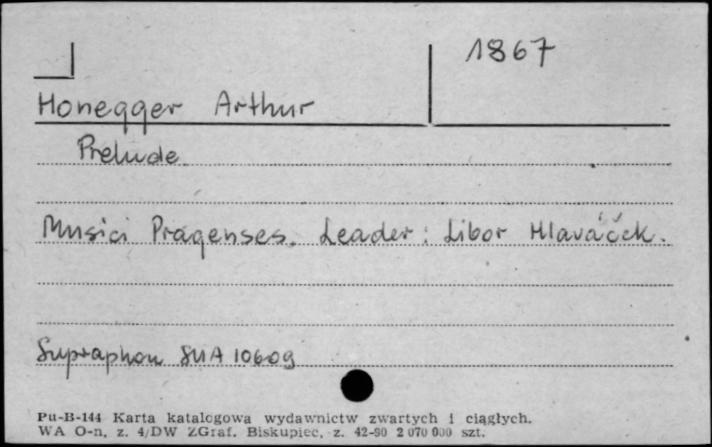 1867
Honegger Arthur
Prelude
Musici Pragenses. Leader: Libor Hlaváček.
Supraphon SUA 10609
Pu-B-144 Karta katalogowa wydawnictw zwartych i ciągłych.
WA O-n, z. 4/DW ZGraf. Biskupiec, z. 42-80 2 070 000 szt.